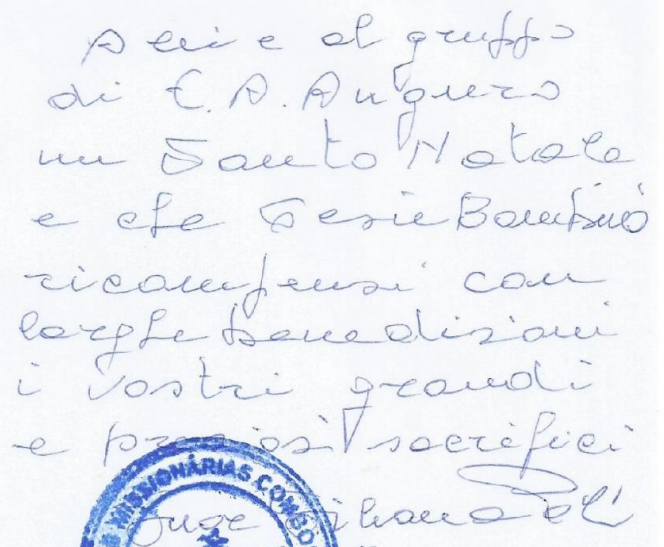 A lei e al gruppo
di E.A. Auguro
un Santo Natale
e che Gesù Bambino
ricompensi con
larghe benedizioni
i vostri grandi
e preziosi sacrifici
MISSIONÁRIAS COMBO
Suor